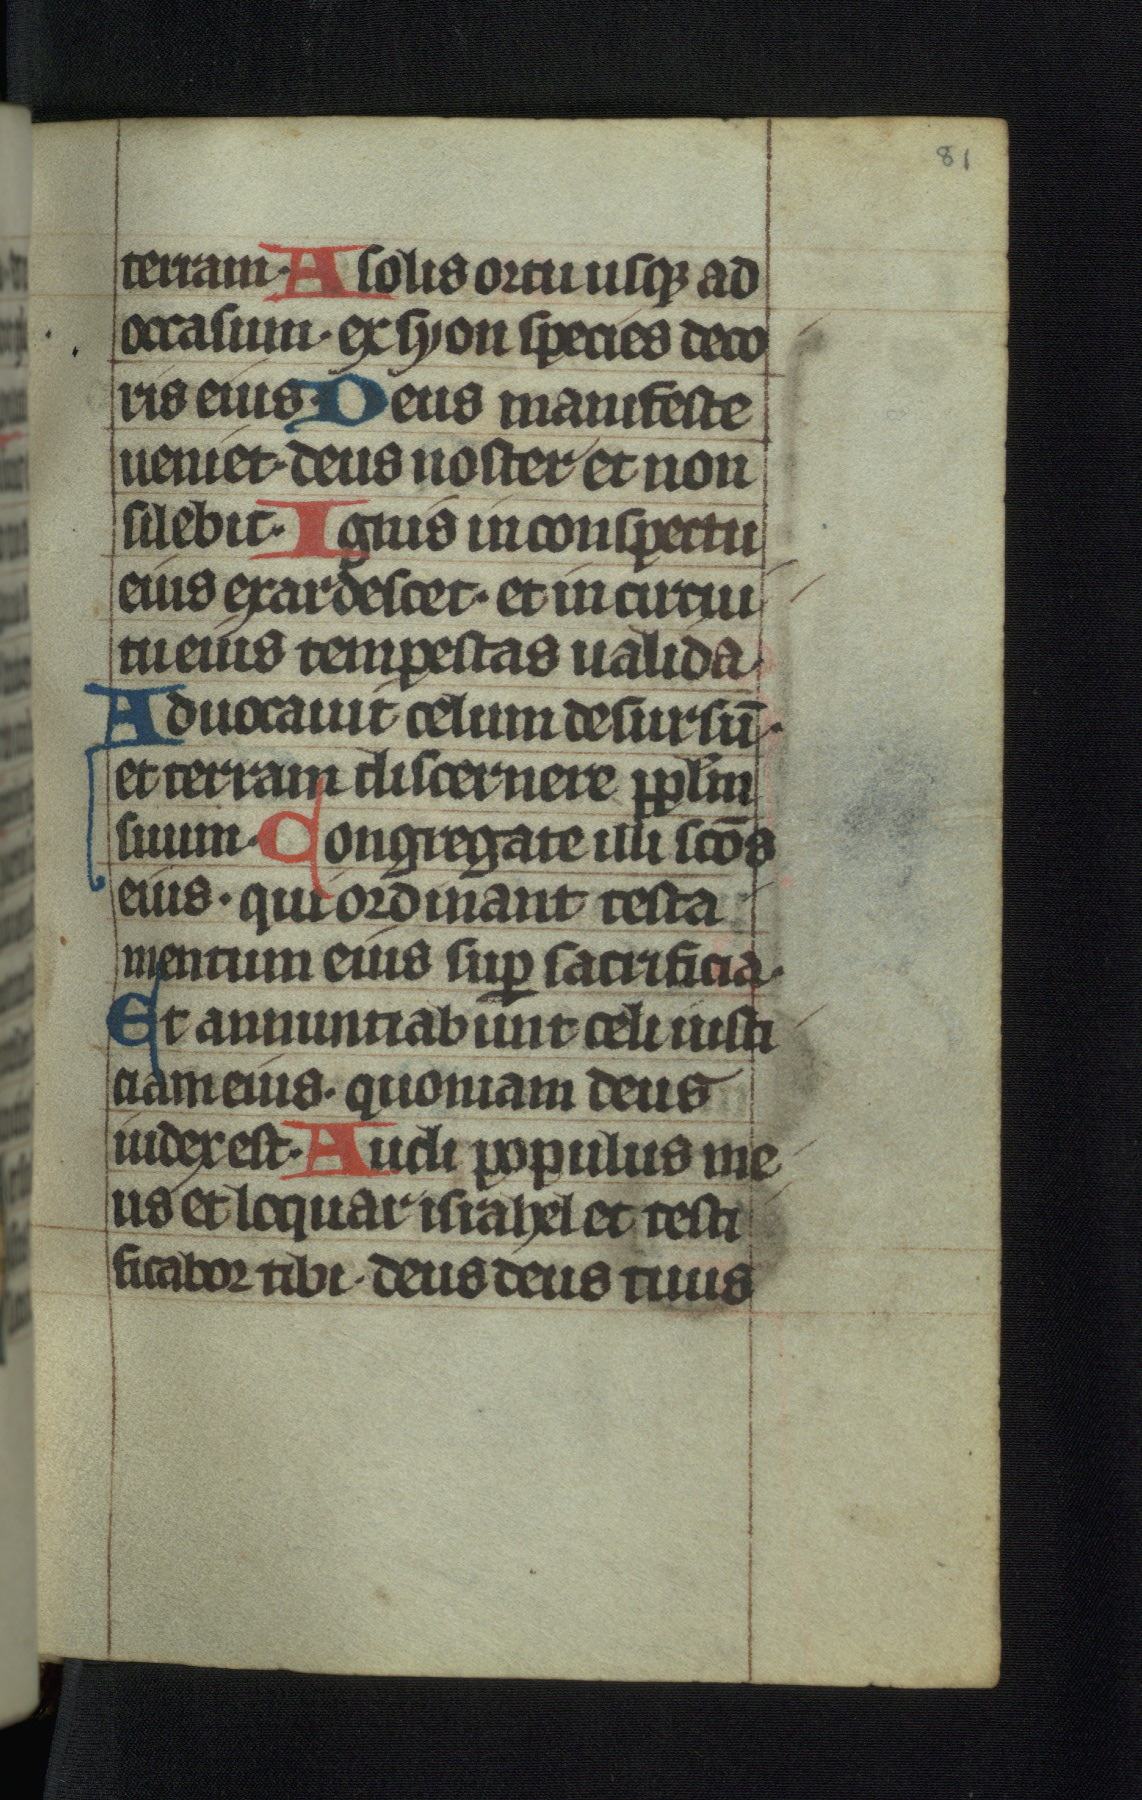 81
terram· A solis ortu usq; ad
occasum· ex syon species deco
ris eius· Deus manifeste
ueniet· deus noster et non
silebit· Ignis in conspectu
eius exardescet· et in circui
tu eius tempestas ualida·
Aduocauit celum desursū·
et terram discernere pplm
suum· Congregate illi scōs
eius· qui ordinant testa
mentum eius sup sacrificia·
Et annuntiabunt celi iusti
ciam eius· quoniam deus
iudex est· Audi populus me
us et loquar israhel et testi
ficabor tibi· deus deus tuus